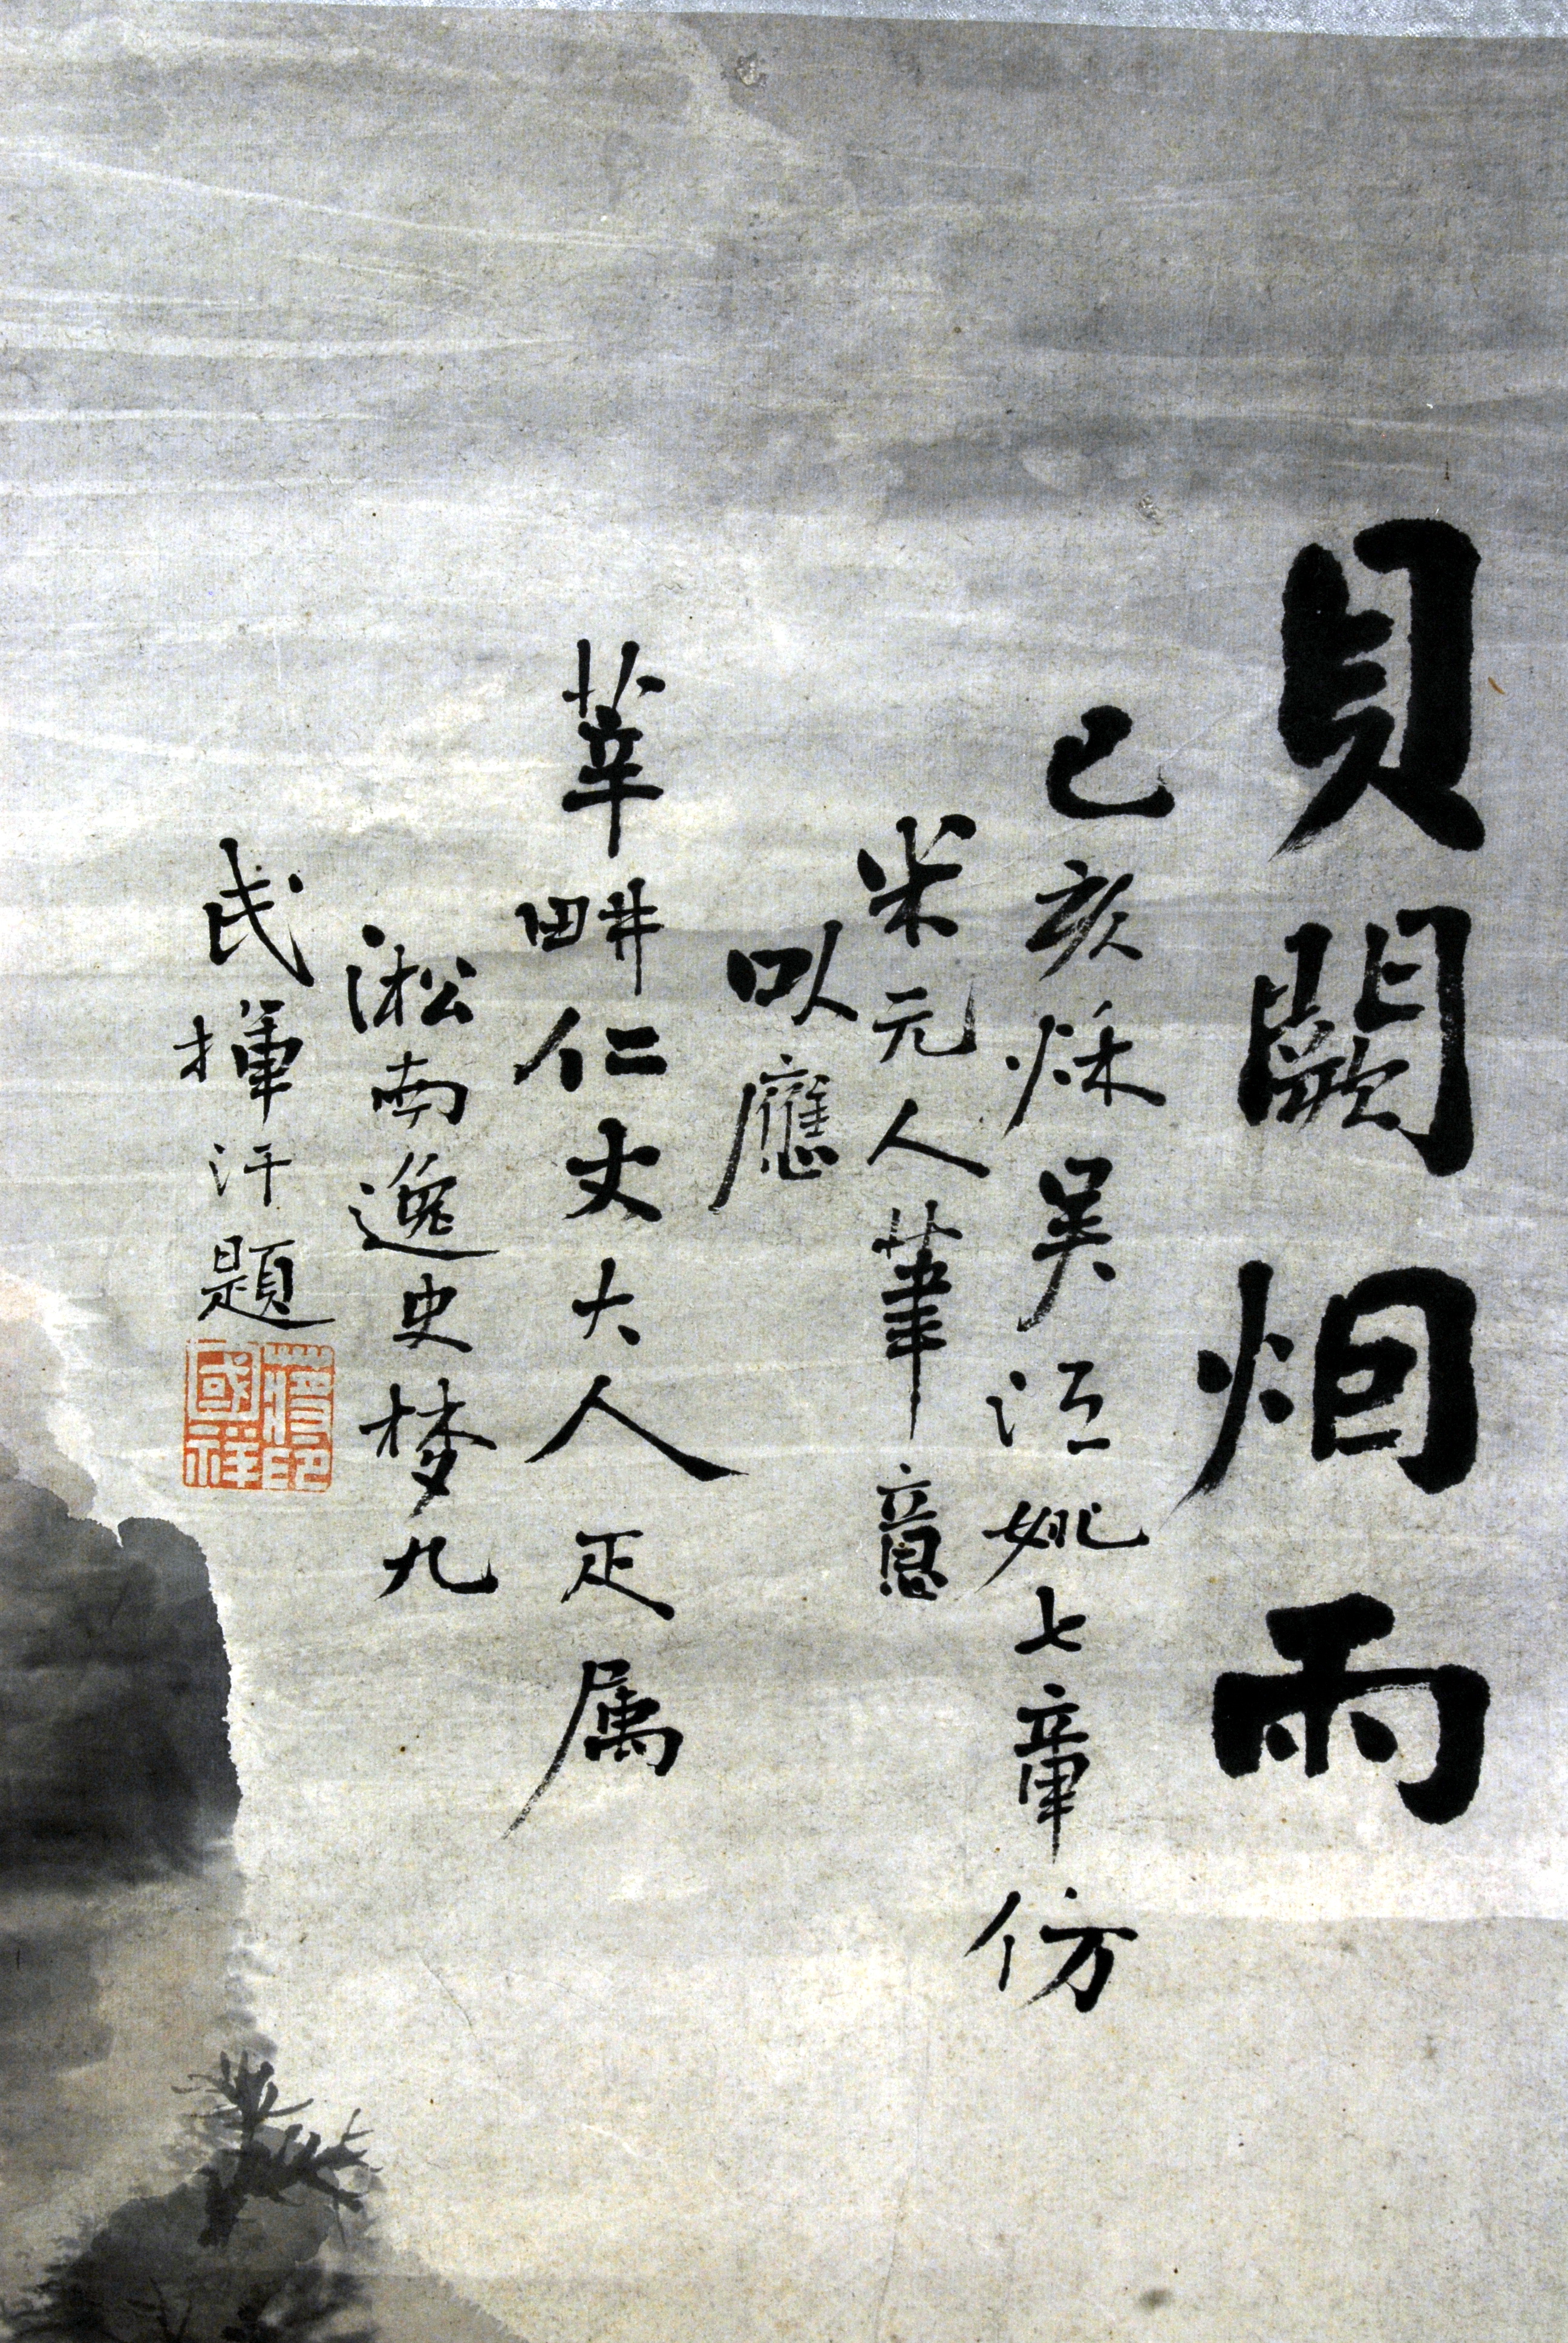 貝闕烟雨
己亥秌吴江姚七章仿
米元人筆意
以應
莘畊仁丈大人疋属
淞南逸史梦九
氏揮汗題
蔣國祥印